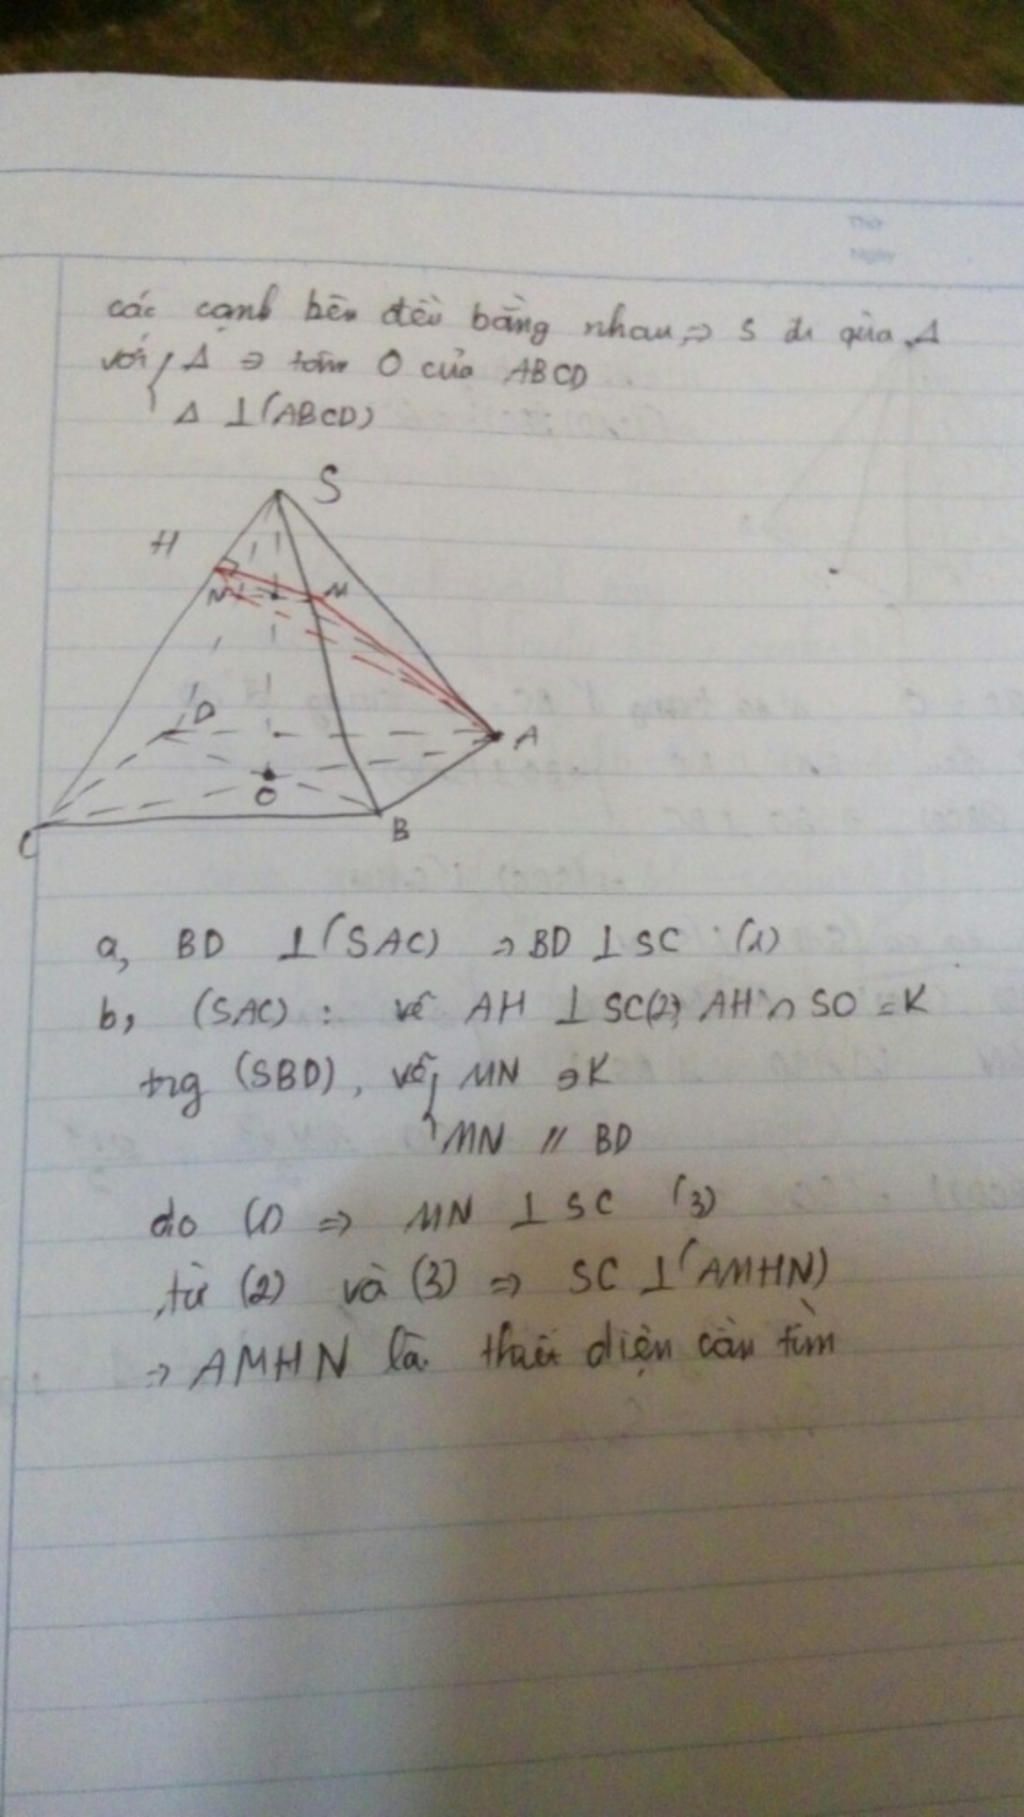 Thứ
Ngày
các cạnh bên đều bằng nhau, ⇒ S đi qua Δ
với { Δ ∋ tâm O của ABCD
Δ ⊥ (ABCD)
S
H
N
M
D
A
O
C
B
a, BD ⊥ (SAC) ⇒ BD ⊥ SC (1)
b, (SAC) : vẽ AH ⊥ SC(2) AH ∩ SO = K
trg (SBD), vẽ { MN ∋ K
MN // BD
do (1) ⇒ MN ⊥ SC (3)
từ (2) và (3) ⇒ SC ⊥ (AMHN)
⇒ AMHN là thiết diện cần tìm